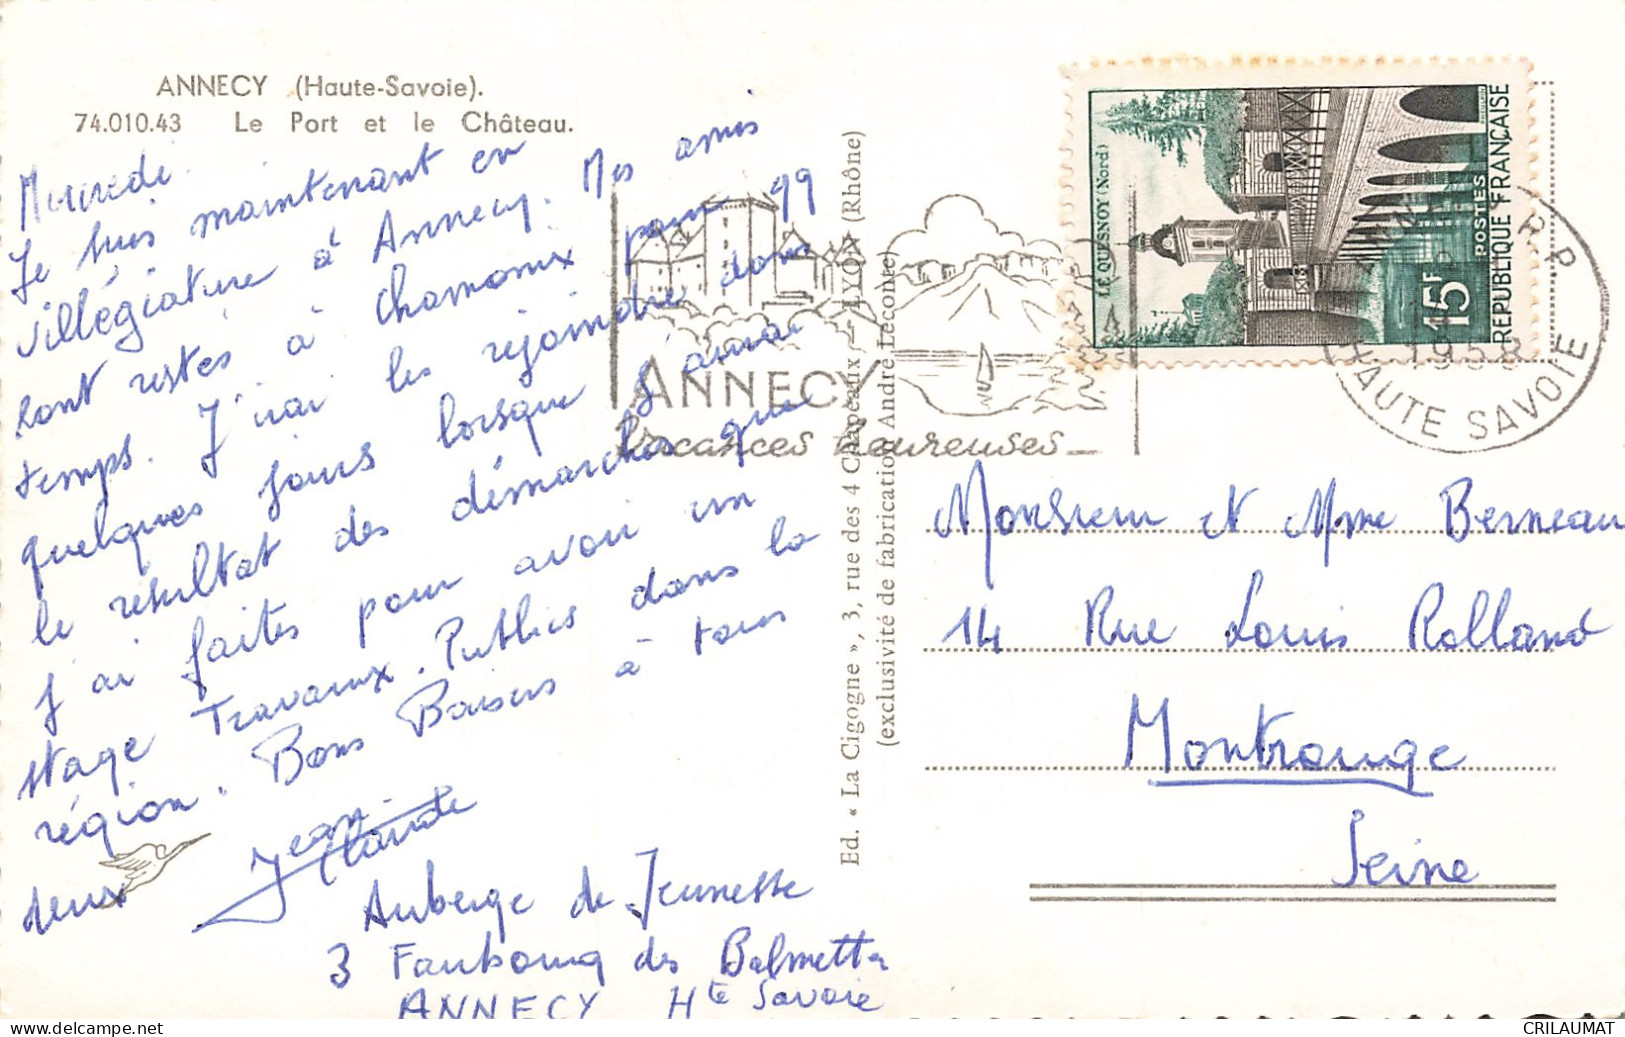 ANNECY (Haute-Savoie).
74.010.43 Le Port et le Château.
Mercredi.
Je suis maintenant en
villégiature à Annecy. Mes amis
sont restés à Chamonix pour qq
temps. J'irai les rejoindre dans
quelques jours lorsque j'aurai
le résultat des démarches que
j'ai faites pour avoir un
stage Travaux Publics dans la
région. Bons Baisers à tous
deux
Jean Claude
Auberge de Jeunesse
3 Faubourg des Balmettes
ANNECY Hte Savoie
Ed. « La Cigogne », 3, rue des 4 Chapeaux - LYON (Rhône)
(exclusivité de fabrication André Leconte)
ANNECY
Vacances heureuses
LE QUESNOY (Nord)
15F
POSTES
REPUBLIQUE FRANÇAISE
R P
1958
HAUTE SAVOIE
Monsieur et Mme Berneau
14 Rue Louis Rolland
Montrouge
Seine
CRILAUMAT